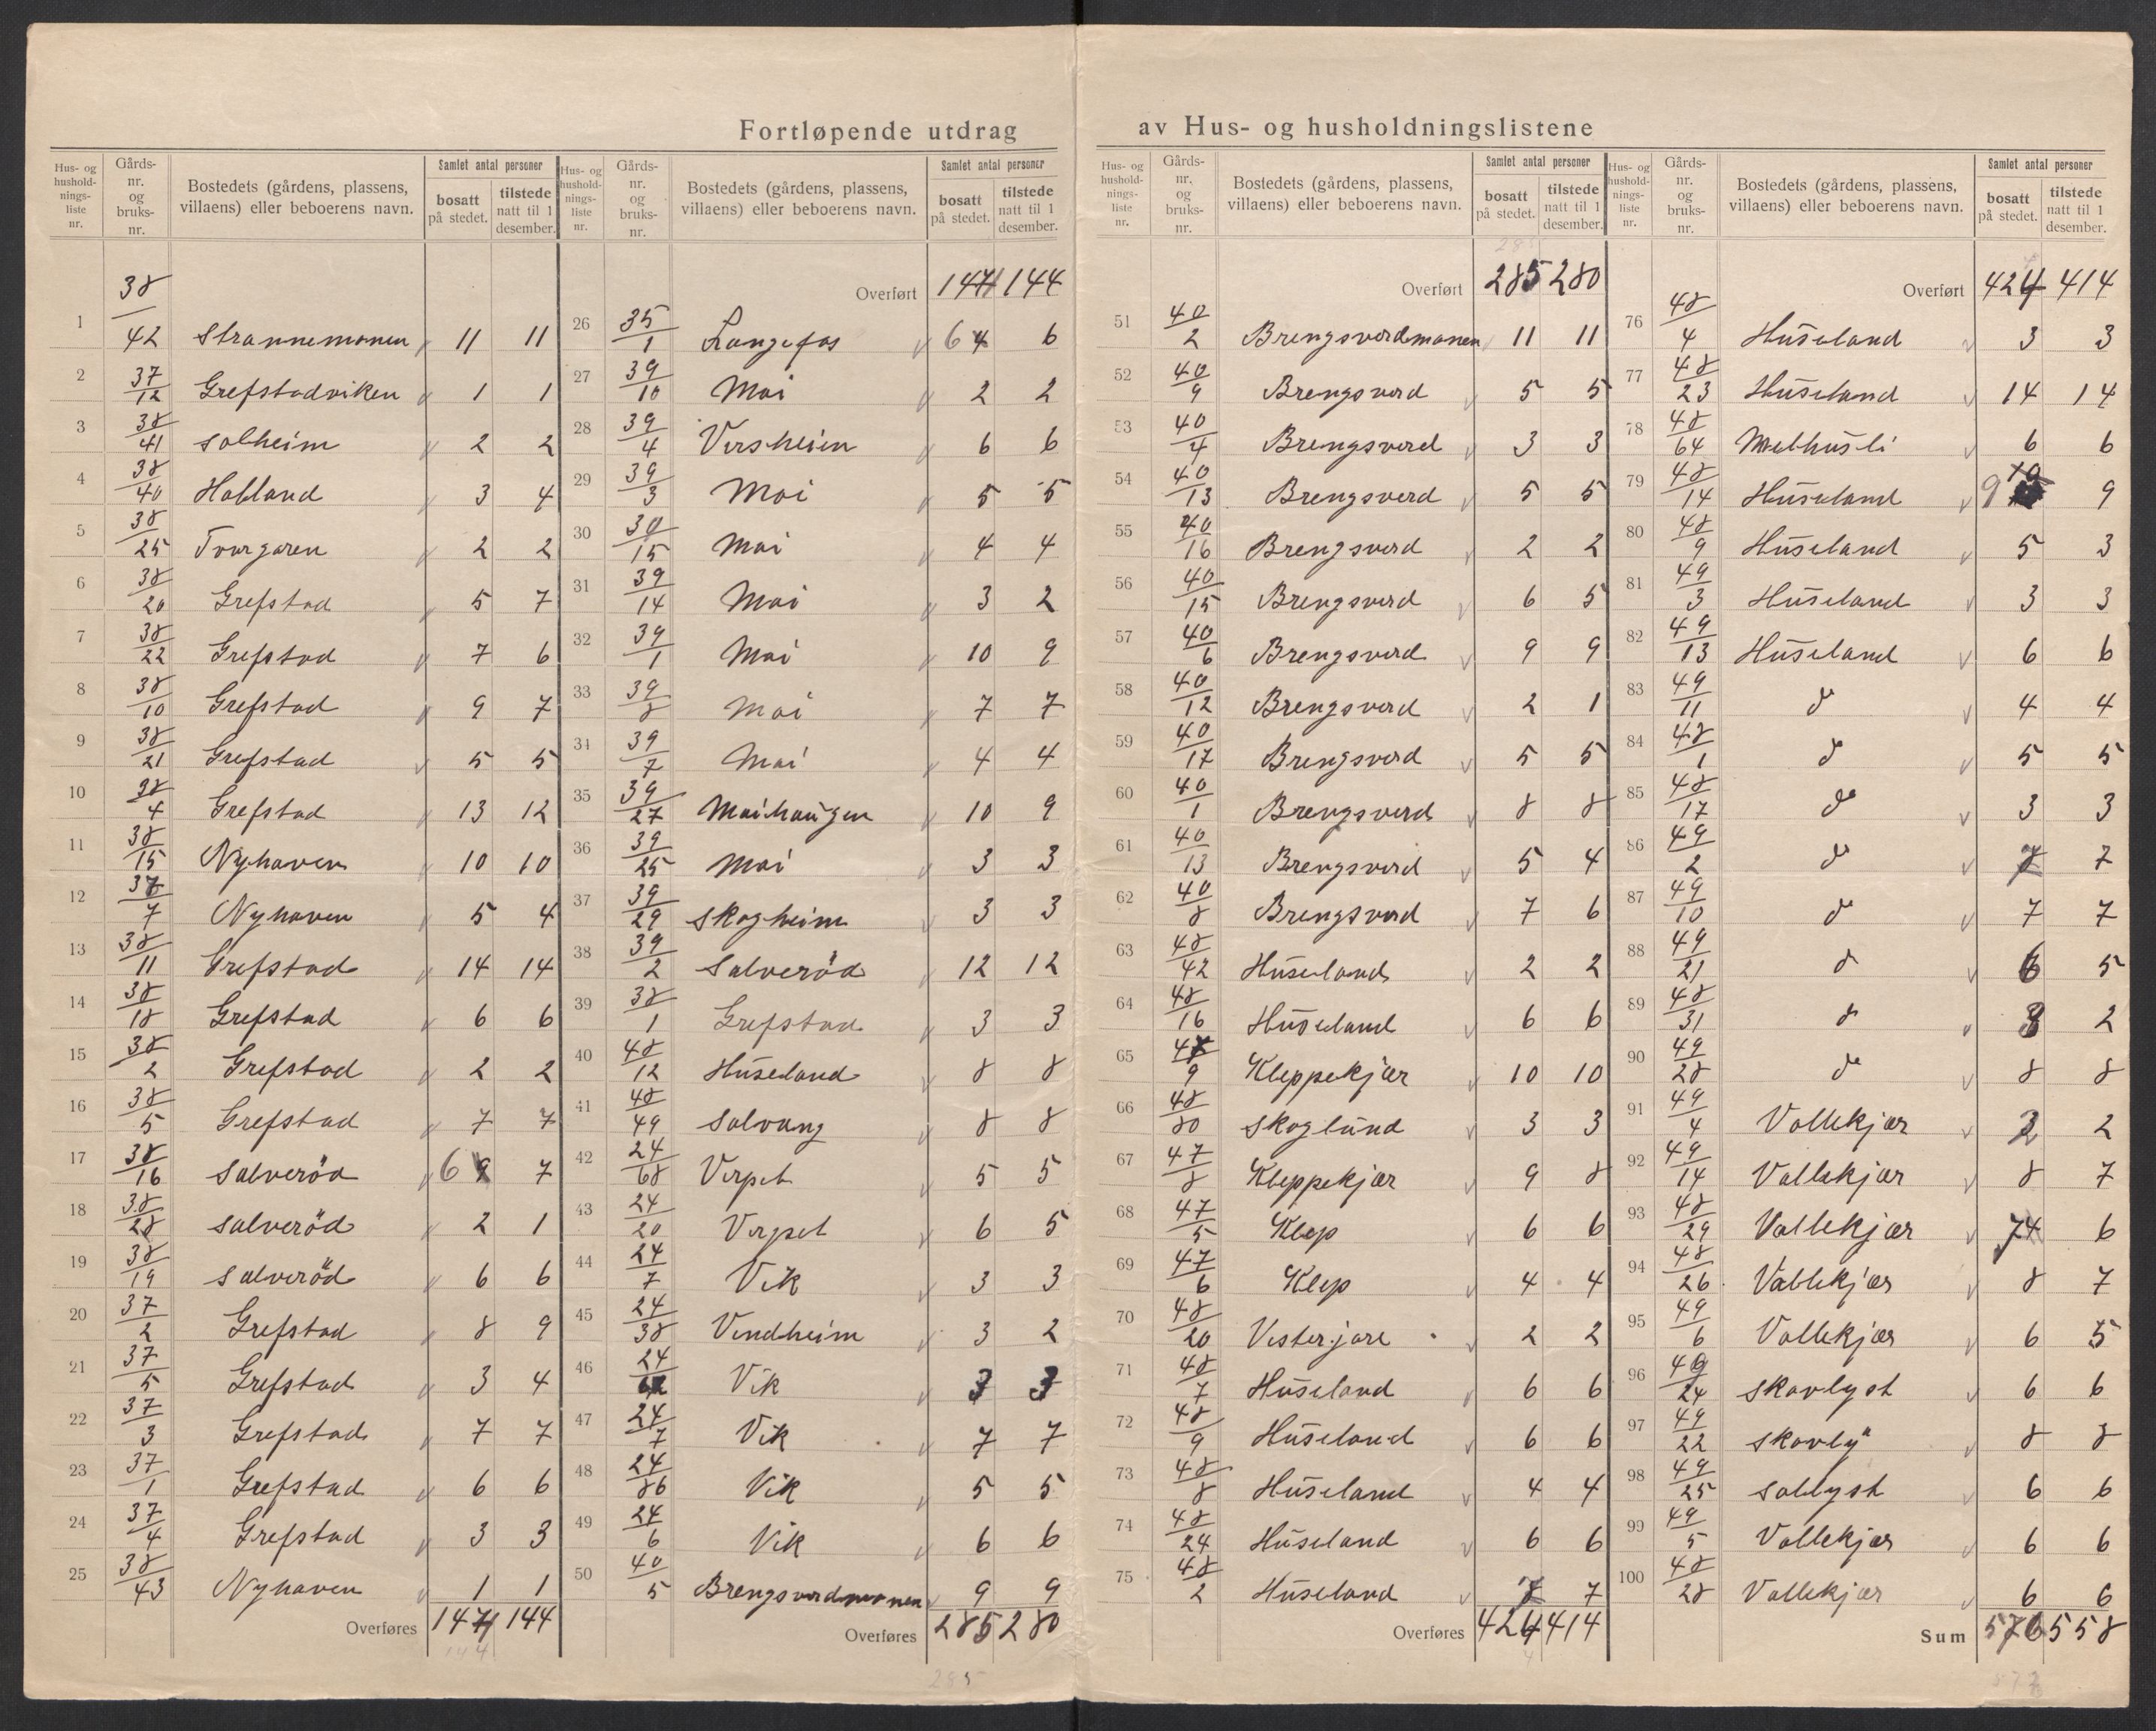 Fortløpende utdrag av Hus- og husholdningslistene
Hus- og hushold-nings-liste nr. Gårds-nr. og bruks-nr. Bostedets (gårdens, plassens, villaens) eller beboerens navn. Samlet antal personer bosatt på stedet. tilstede natt til 1 desember.
1 38/42 Strannemonen 11 11
2 37/12 Grefstadviken 1 1
3 38/41 Solheim 2 2
4 38/40 Holland 3 4
5 38/25 Torgaren 2 2
6 38/20 Grefstad 5 7
7 38/22 Grefstad 7 6
8 38/10 Grefstad 9 7
9 38/21 Grefstad 5 5
10 38/4 Grefstad 13 12
11 38/15 Nyhaven 10 10
12 37/7 Nyhaven 5 4
13 38/11 Grefstad 14 14
14 38/18 Grefstad 6 6
15 38/2 Grefstad 2 2
16 38/5 Grefstad 7 7
17 38/16 Salveröd 6 7
18 38/28 Salveröd 2 1
19 38/19 Salveröd 6 6
20 37/2 Grefstad 8 9
21 37/5 Grefstad 3 4
22 37/3 Grefstad 7 7
23 37/1 Grefstad 6 6
24 37/4 Grefstad 3 3
25 38/43 Nyhaven 1 1
Overføres 144
144
Hus- og hushold-nings-liste nr. Gårds-nr. og bruks-nr. Bostedets (gårdens, plassens, villaens) eller beboerens navn. Samlet antal personer bosatt på stedet. tilstede natt til 1 desember.
Overført 144
26 35/1 Langefos 6 6
27 39/10 Moi 2 2
28 39/4 Versheim 6 6
29 39/3 Moi 5 5
30 30/15 Moi 4 4
31 39/14 Moi 3 2
32 39/1 Moi 10 9
33 39/8 Moi 7 7
34 39/7 Moi 4 4
35 39/27 Moihaugen 10 9
36 39/25 Moi 3 3
37 39/29 Skogheim 3 3
38 39/2 Salveröd 12 12
39 38/1 Grefstad 3 3
40 48/12 Huseland 8 8
41 48/49 Solvang 8 8
42 24/68 Verpet 5 5
43 24/20 Verpet 6 5
44 24/7 Vik 3 3
45 24/38 Vendheim 3 2
46 24 Vik 3 3
47 24/7 Vik 7 7
48 24/86 Vik 5 5
49 24/6 Vik 6 6
50 40/5 Brengsverdmonen 9 9
Overføres 285 280
285
Hus- og hushold-nings-liste nr. Gårds-nr. og bruks-nr. Bostedets (gårdens, plassens, villaens) eller beboerens navn. Samlet antal personer bosatt på stedet. tilstede natt til 1 desember.
Overført 285 280
51 40/2 Brengsverdmonen 11 11
52 40/9 Brengsverd 5 5
53 40/4 Brengsverd 3 3
54 40/13 Brengsverd 5 5
55 40/16 Brengsverd 2 2
56 40/15 Brengsverd 6 5
57 40/6 Brengsverd 9 9
58 40/12 Brengsverd 2 1
59 40/17 Brengsverd 5 5
60 40/1 Brengsverd 8 8
61 40/13 Brengsverd 5 4
62 40/8 Brengsverd 7 6
63 48/42 Huseland 2 2
64 48/16 Huseland 6 6
65 47/9 Kleppekjær 10 10
66 48/80 Skoglund 3 3
67 47/8 Kleppekjær 9 8
68 47/5 Klep 6 6
69 47/6 Klep 4 4
70 48/20 Vesterjore 2 2
71 48/7 Huseland 6 6
72 48/9 Huseland 6 6
73 48/8 Huseland 4 4
74 48/24 Huseland 6 6
75 48/2 Huseland 7 7
Overføres 424 414
Hus- og hushold-nings-liste nr. Gårds-nr. og bruks-nr. Bostedets (gårdens, plassens, villaens) eller beboerens navn. Samlet antal personer bosatt på stedet. tilstede natt til 1 desember.
Overført 424 414
76 48/4 Huseland 3 3
77 48/23 Huseland 14 14
78 48/64 Melhusli 6 6
79 48/14 Huseland 9 9
80 48/9 Huseland 5 3
81 49/3 Huseland 3 3
82 49/13 Huseland 6 6
83 49/11 do 4 4
84 48/1 do 5 5
85 48/17 do 3 3
86 49/2 do 7
87 49/10 do 7 7
88 49/21 do 6 5
89 48/31 do 3 2
90 49/28 do 8 8
91 49/4 Vollekjær 2
92 49/14 Vollekjær 8 7
93 48/29 Vollekjær 7 6
94 48/26 Vollekjær 8 7
95 49/6 Vollekjær 6 5
96 49/24 Skovlyst 6 6
97 49/22 Skovly 8 8
98 49/25 Sollyst 6 6
99 49/5 Vollekjær 6 6
100 48/28 Vollekjær 6 6
Sum 576 558